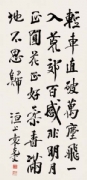 輕車直破萬塵飛一
入荒郊百感非明月
正圓花正好香滿
地不思歸
洹上袁克文